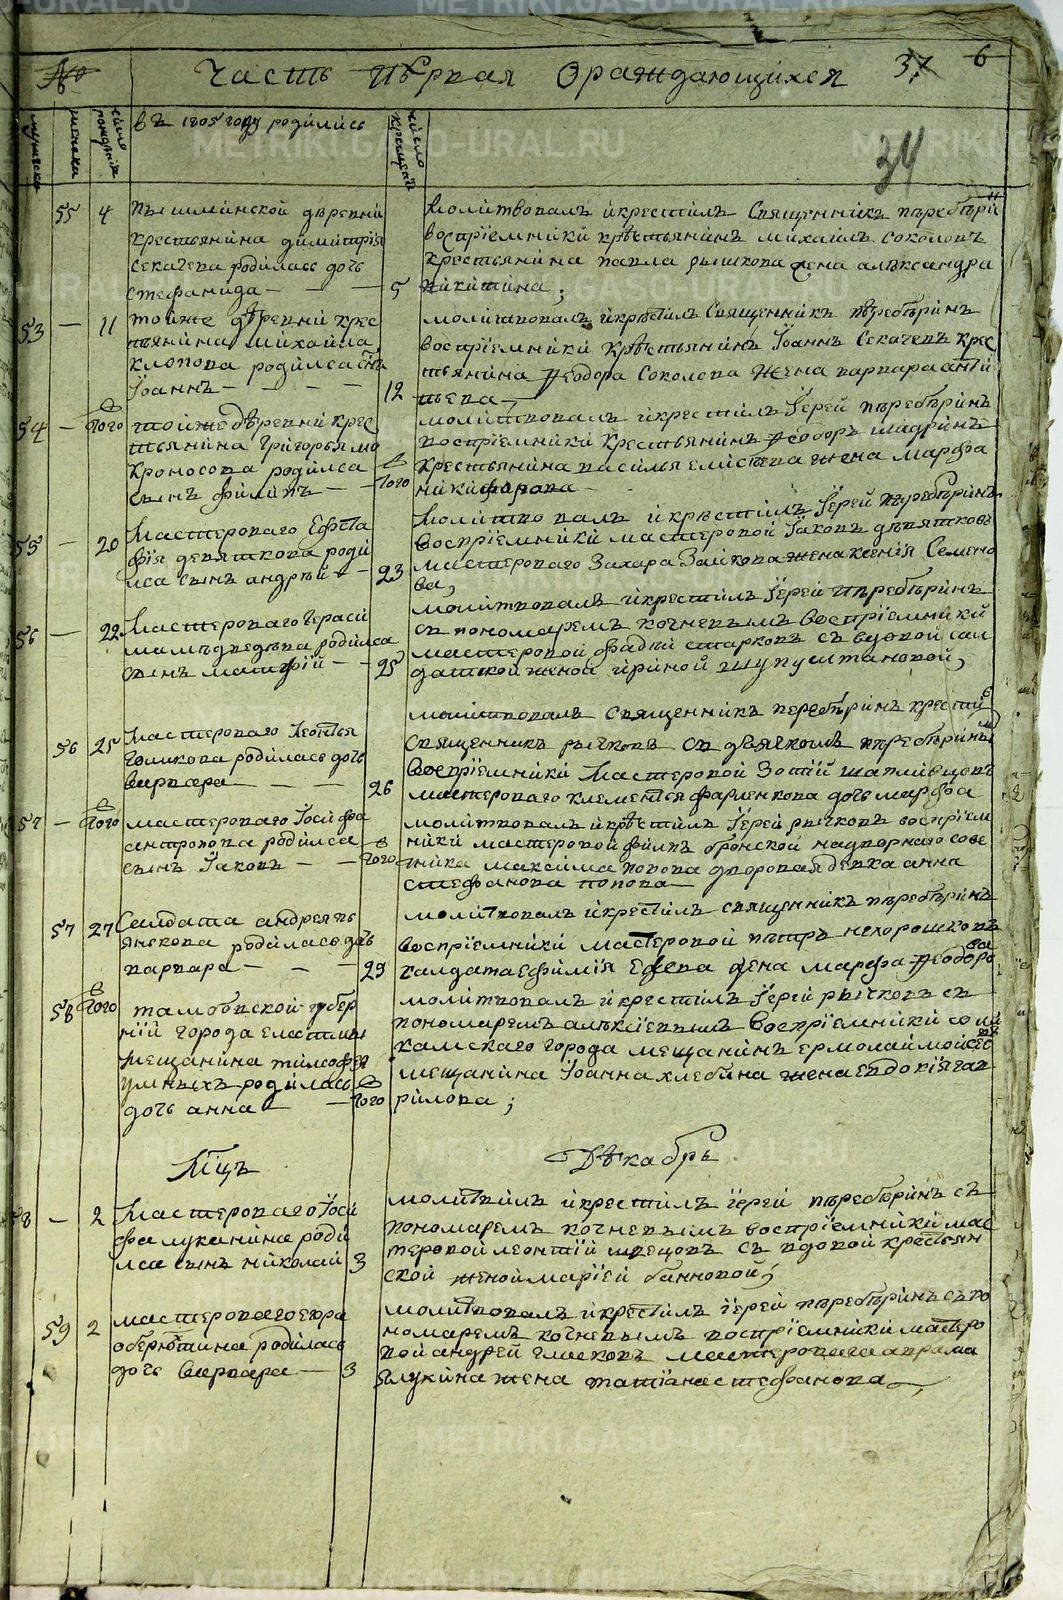 № Часть пѣрвая Ораждающихся 37 6
мужеска
женска
число рождѣнія
въ 1805 году родились
число крещенія
34
55 4 пышминской дѣревни
крестьянина димитрія
секачева родилась дочь
стефанида — — — 5
молитвовалъ икрестилъ Священникъ пѣребѣринъ
воспріемники крѣстьянинъ михаилъ соколовъ
крестьянина павла рышкова жена александра
никитина;
53 — 11 тойже дѣревни крес
тьянина михаила
клопова родился снъ
Іоаннъ — — — — 12
молитвовалъ икрѣстилъ Священникъ пѣребѣринъ
воспріемники крѣстьянинъ Іоаннъ Секачевъ крес
тьянина Феодора Соколова жена варвара анти
пьева —
54 — в того тойже дѣревни крес
тьянина григорья мо
кроносова родился
сынъ филипъ — — в того
молитвовалъ икрестилъ Іерей пѣребѣринъ
воспріемники крестьянинъ Феодоръ шадринъ
крестьянина василья елисѣева жена марфа
никифорова —
55 — 20 Мастероваго Евста
фія девяткова роди
лса сынъ андрѣй — 23
молитвовалъ икрѣстилъ Іерей пѣребѣринъ
воспріемники мастеровой Іаковъ дѣвятковъ
мастероваго Захара Заикова жена ксенія Семено
ва,
56 — 22 Мастероваго гераси
ма мѣдведѣва родился
сынъ матфій — — 25
молитвовалъ икрестилъ Іерей пѣребѣринъ
съ пономарѣмъ кочневымъ воспріемники
мастеровой фадѣй старковъ съ вдовой сал
датской женой ириной шупуштановой,
56 25 Мастероваго леонтья
голикова родилась дочь
варвара — — — 26
молитвовалъ священникъ перебѣринъ крестилъ
священникъ рычковъ съ дьячкомъ пѣребѣринымъ
Воспріемники Мастеровой Зотій шапливцовъ
мастероваго клементья фарленкова дочь марфа
57 — в того мастероваго Іосифа
антропова родился
сынъ Іаковъ — — в того
молитвовалъ икрѣстилъ Іерей рычковъ воспріем
ники мастеровой филипъ бронской надворнаго сове
тника максима попова дворовая девка анна
стефанова попова —
57 27 Салдата андрея пь
янкова родилась дочь
варвара — — — 29
молитвовалъ икрестилъ священникъ пѣребѣринъ
воспріемники мастеровой пѣтръ нехорошковъ
салдата Ефимія Ежева жена марфа Феодорова
58 в того тамбовской губер
ніи города елатмы
мещанина тимофея
умныхъ родилась
дочь анна — — в того
молитвовалъ икрестилъ Іерей рычковъ съ
пономаремъ алѣксіевымъ воспріемники соли
камскаго города мещанинъ ермолай мойсеевъ
мещанина Іоанна хлебина жена евдокія гав
рилова;
Мцъ Дѣкабрь
58 — 2 Мастероваго Іоси
фа луканина роди
лса сынъ николай 3
молитвилъ икрестилъ іерей пѣребѣринъ съ
пономаремъ кочневымъ воспріемники мас
теровой леонтій швецовъ съ вдовой крестьян
ской женой маріей банновой;
59 2 мастероваго егора
обернютина родилась
дочь варвара — 3
молитвовалъ икрестилъ іерей пѣребѣринъ съ по
номаремъ кочневымъ воспріемники мастеро
вой андрей гласковъ мастероваго аврама
ялукина жена татіана стефанова —